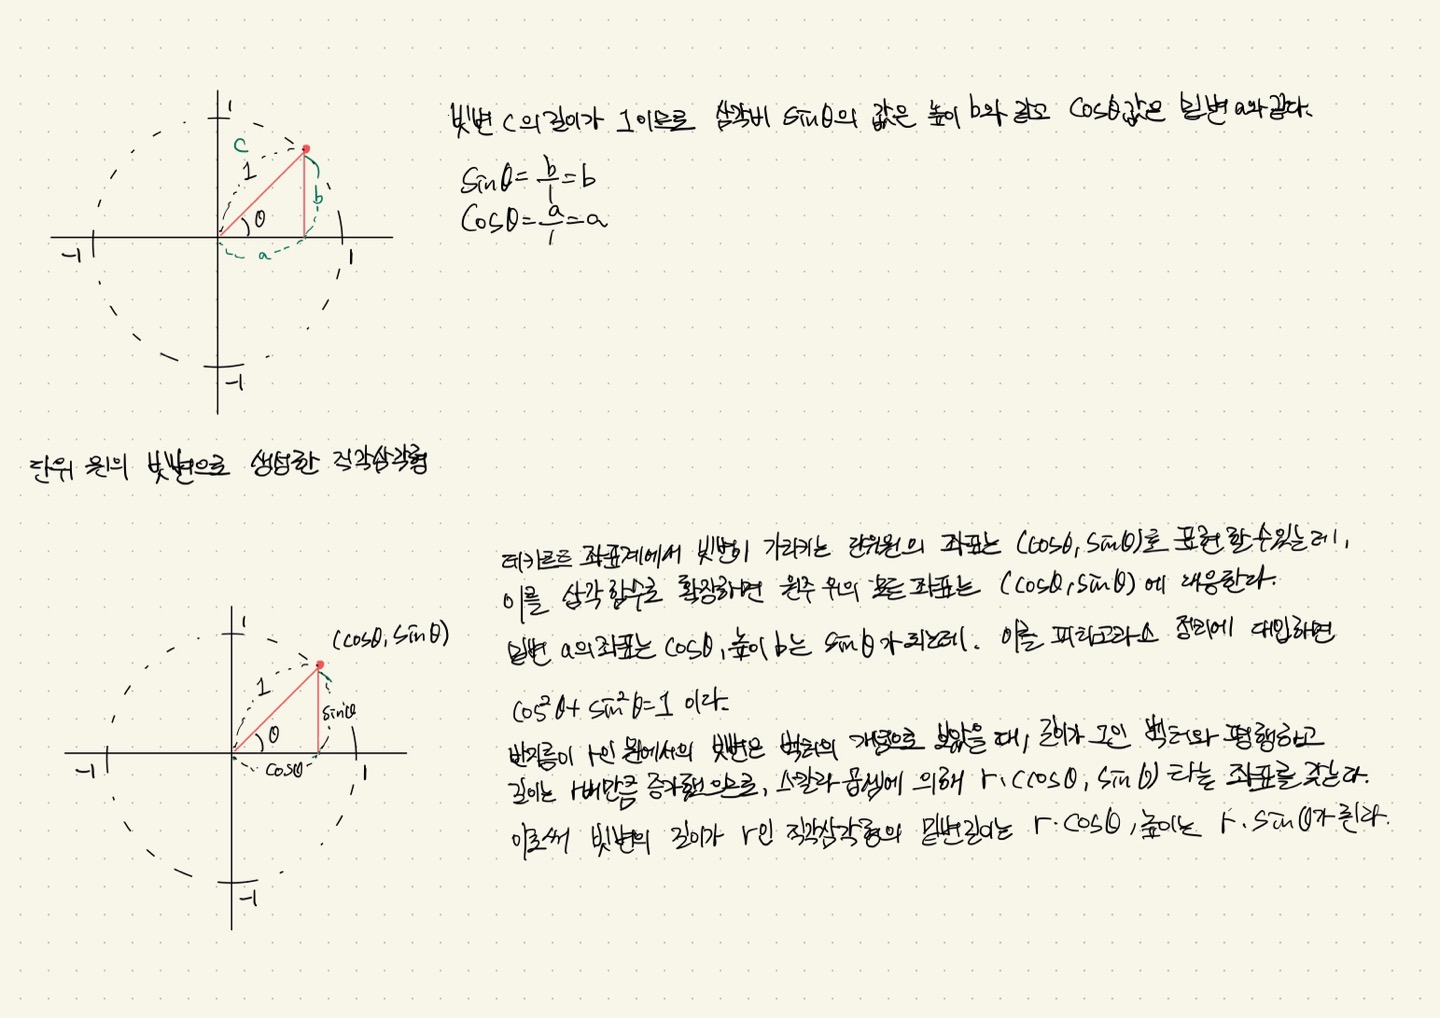 1
C
1
θ
b
a
-1
1
-1
빗변 C의 길이가 1이므로 삼각비 sinθ의 값은 높이 b와 같고 cosθ값은 밑변 a와 같다.
sinθ = b/1 = b
cosθ = a/1 = a
단위 원의 빗변으로 생성한 직각삼각형
1
(cosθ, sinθ)
1
θ
sinθ
cosθ
-1
1
-1
데카르트 좌표계에서 빗변이 가리키는 단위원의 좌표는 (cosθ, sinθ)로 표현할 수 있는데,
이를 삼각함수로 확장하면 원주 위의 모든 좌표는 (cosθ, sinθ)에 대응한다.
밑변 a의 좌표는 cosθ, 높이 b는 sinθ가 되는데. 이를 피타고라스 정리에 대입하면
cos²θ + sin²θ = 1 이다.
반지름이 r인 원에서의 빗변은 벡터의 개념으로 보았을 때, 길이가 1인 벡터와 평행하고
길이는 r배만큼 증가했으므로, 스칼라 곱셈에 의해 r·(cosθ, sinθ) 라는 좌표를 갖는다.
이로써 빗변의 길이가 r인 직각삼각형의 밑변길이는 r·cosθ, 높이는 r·sinθ가 된다.